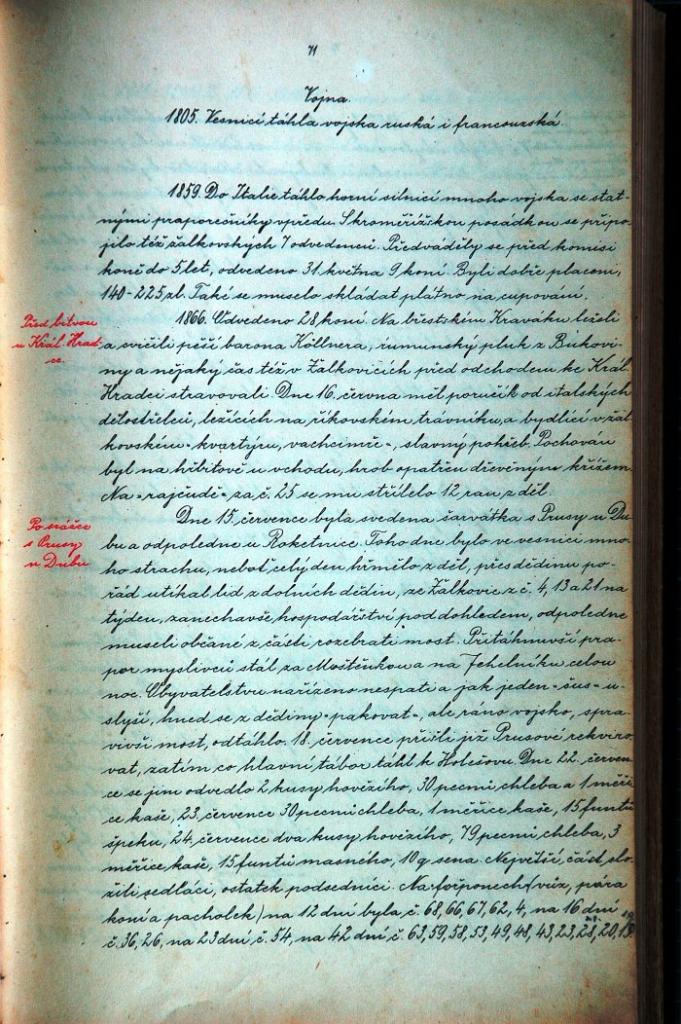 71
Vojna.
1805. Vesnicí táhla vojska ruská i francouzská.
1859. Do Italie táhlo horní silnicí mnoho vojska se stat-
nými praporečníky vpředu. S kroměřížskou posádkou se připo-
jilo též žalkovských 7 odvedenců. Předváděly se před komisí
koně do 5 let, odvedeno 31. května 9 koní. Byli dobře placeni,
140-225 zl. Také se muselo skládat plátno na cupování.
Před bitvou
u Král. Hrad-
ce.
1866. Odvedeno 28 koní. Na břestském Kraváku leželi
a cvičili pěší barona Köllnera, rumunský pluk z Bukovi-
ny a nějaký čas též v Žalkovicích před odchodem ke Král.
Hradci stravovali. Dne 16. června měl poručík od italských
dělostřelců, ležících na říkovském trávníku, a bydlící v žal-
kovském „kvartýru, vachcimře“, slavný pohřeb. Pochován
byl na hřbitově u vchodu, hrob opatřen dřevěným křížem.
Na „rajčudě“ za č. 25 se mu střílelo 12 ran z děl.
Po srážce
s Prusy
u Dubu
Dne 15. července byla svedena šarvátka s Prusy u Du-
bu a odpoledne u Roketnice. Toho dne bylo ve vesnici mno-
ho strachu, neboť celý den hřmělo z děl, přes dědinu po-
řád utíkal lid z dolních dědin, ze Žalkovic z č. 4, 13 a 21 na
týden, zanechavše hospodářství pod dohledem, odpoledne
museli občané z části rozebrati most. Přitáhnuvší pra-
por myslivců stál za Moštěnkou a na Jehelníku celou
noc. Obyvatelstvu nařízeno nespati a jak jeden „šus“ u-
slyší, hned se z dědiny „pakovat“, ale ráno vojsko, spra-
vivši most, odtáhlo. 18. července přišli již Prusové rekviro-
vat, zatím co hlavní tábor táhl k Holešovu. Dne 22. červen-
ce se jim odvedlo 2 kusy hovězího, 30 pecnů chleba a 1 měři-
ce kaše, 23. července 30 pecnů chleba, 1 měřice kaše, 15 funtů
špeku, 24. července dva kusy hovězího, 79 pecnů chleba, 3
měřice kaše, 15 funtů masného, 10 q sena. Největší část slo-
žili sedláci, ostatek podsedníci. Na foršponech (vůz, pára
koní a pacholek) na 12 dní byla č. 68, 66, 67, 62, 4, na 16 dní
č. 36, 26, na 23 dní č. 54, na 42 dní č. 63, 59, 58, 53, 49, 48, 43, 23, 28, 20,